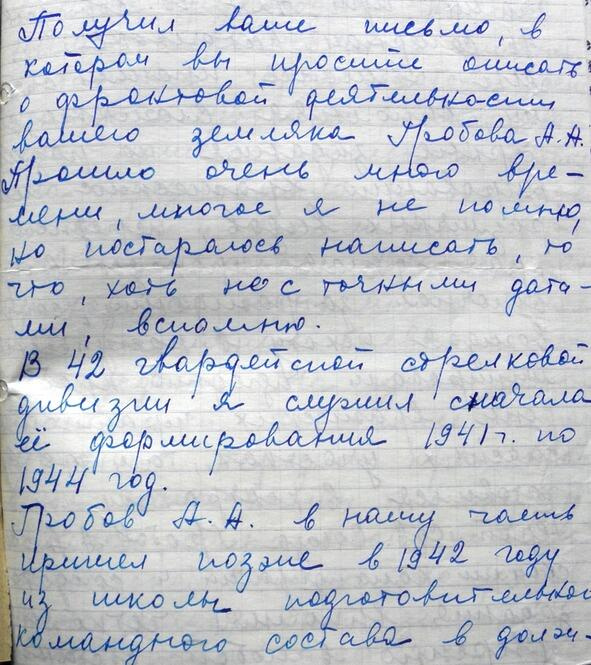 Получил ваше письмо, в
котором вы просите описать
о фронтовой деятельности
вашего земляка Гробова А.А.
Прошло очень много вре-
мени, многое я не помню,
но постараюсь написать, то
что, хоть не с точными дата-
ми, вспомню.
В 42 гвардейской стрелковой
дивизии я служил с начала
её формирования 1941 г. по
1944 год.
Гробов А.А. в нашу часть
пришел позже в 1942 году
из школы подготовительного
командного состава в долж-